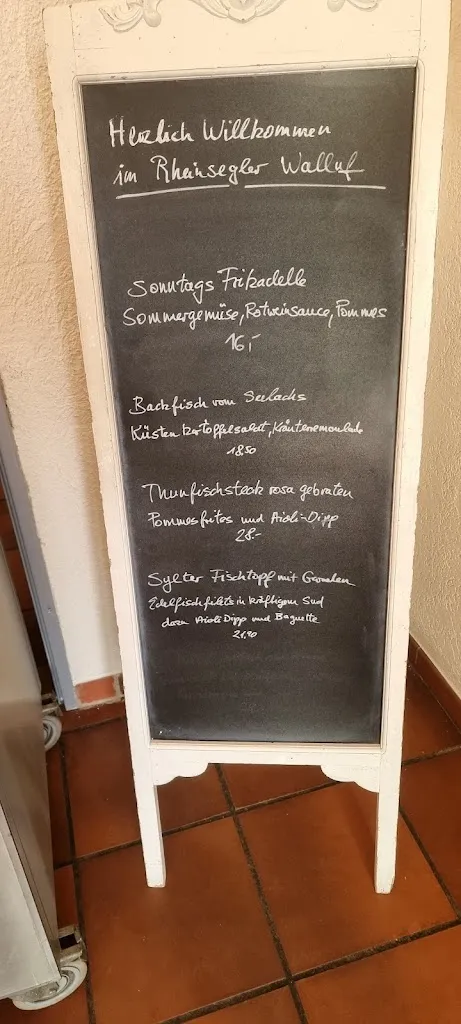 Herzlich Willkommen
im Rheinsegler Walluf
Sonntags Frikadelle
Sommergemüse, Rotweinsauce, Pommes
16,-
Backfisch vom Seelachs
Küsten Kartoffelsalat, Kräuterremoulade
18.50
Thunfischsteak rosa gebraten
Pommes frites und Aioli-Dipp
28.-
Sylter Fischtopf mit Garnelen
Edelfischfilets in kräftigem Sud
dazu Aioli Dipp und Baguette
21,90